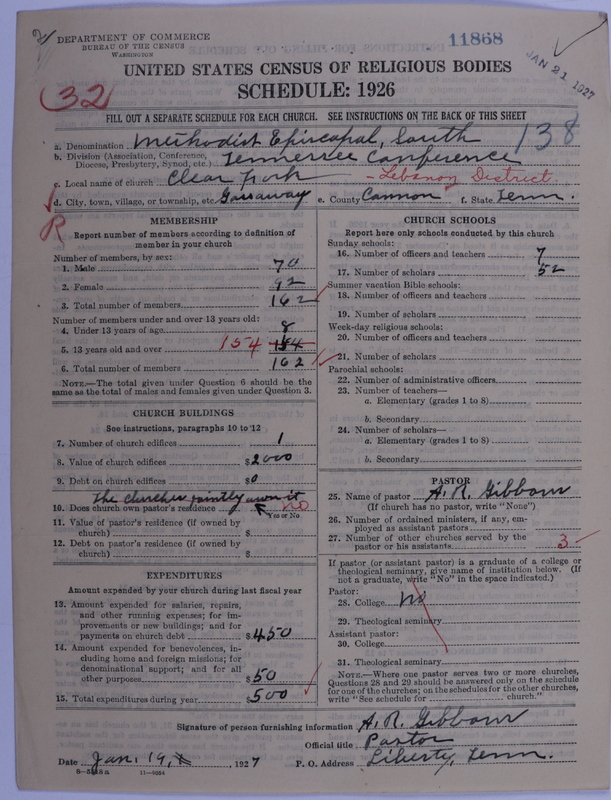 DEPARTMENT OF COMMERCE
BUREAU OF THE CENSUS
WASHINGTON
11868
JAN 21 1927
UNITED STATES CENSUS OF RELIGIOUS BODIES
32
SCHEDULE: 1926
FILL OUT A SEPARATE SCHEDULE FOR EACH CHURCH. SEE INSTRUCTIONS ON THE BACK OF THIS SHEET
138
a. Denomination Methodist Episcopal, South
b. Division (Association, Conference, Diocese, Presbytery, Synod, etc.) Tennessee Conference
c. Local name of church Clear Fork - Lebanon District
d. City, town, village, or township, etc. Gassaway e. County Cannon f. State Tenn.
R
MEMBERSHIP
Report number of members according to definition of
member in your church
Number of members, by sex:
1. Male 70
2. Female 92
3. Total number of members 162
Number of members under and over 13 years old:
4. Under 13 years of age 8
5. 13 years old and over 154 154
6. Total number of members 162
NOTE.—The total given under Question 6 should be
the same as the total of males and females given under Question 3.
CHURCH BUILDINGS
See instructions, paragraphs 10 to 12
7. Number of church edifices 1
8. Value of church edifices $2000
9. Debt on church edifices $0
The churches jointly own it
10. Does church own pastor's residence no
Yes or No
11. Value of pastor's residence (if owned by
church) $
12. Debt on pastor's residence (if owned by
church) $
EXPENDITURES
Amount expended by your church during last fiscal year
13. Amount expended for salaries, repairs,
and other running expenses; for im-
provements or new buildings; and for
payments on church debt $450
14. Amount expended for benevolences, in-
cluding home and foreign missions; for
denominational support; and for all
other purposes $50
15. Total expenditures during year $500
CHURCH SCHOOLS
Report here only schools conducted by this church
Sunday schools:
16. Number of officers and teachers 7
17. Number of scholars 52
Summer vacation Bible schools:
18. Number of officers and teachers
19. Number of scholars
Week-day religious schools:
20. Number of officers and teachers
21. Number of scholars
Parochial schools:
22. Number of administrative officers
23. Number of teachers—
a. Elementary (grades 1 to 8)
b. Secondary
24. Number of scholars—
a. Elementary (grades 1 to 8)
b. Secondary
PASTOR
25. Name of pastor A. R. Gibbons
(If church has no pastor, write "None")
26. Number of ordained ministers, if any, em-
ployed as assistant pastors
27. Number of other churches served by the
pastor or his assistants 3
If pastor (or assistant pastor) is a graduate of a college or
theological seminary, give name of institution below. (If
not a graduate, write "No" in the space indicated.)
Pastor:
28. College No
29. Theological seminary
Assistant pastor:
30. College
31. Theological seminary
NOTE.—Where one pastor serves two or more churches,
Questions 28 and 29 should be answered only on the schedule
for one of the churches; on the schedules for the other churches,
write "See schedule for church."
Signature of person furnishing information A. R. Gibbons
Official title Pastor
Date Jan. 19, 1927 P. O. Address Liberty, Tenn.
11—9054